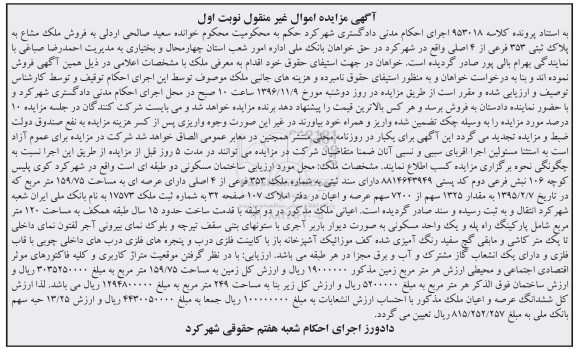 آگهی مزایده اموال غیر منقول نوبت اول
به استناد پرونده کلاسه ۹۵۳۰۱۸ اجرای احکام مدنی دادگستری شهرکرد حکم به محکومیت محکوم خوانده سعید صالحی اردلی به فروش ملک مشاع به
پلاک ثبتی ۳۵۳ فرعی از ۴ اصلی واقع در شهرکرد در حق خواهان بانک ملی اداره امور شعب استان چهارمحال و بختیاری به مدیریت احمدرضا صباغی با
نمایندگی بهرام بالی پور صادر گردیده است. خواهان در جهت استیفای حقوق خود اقدام به معرفی ملک با مشخصات اعلامی در ذیل همین آگهی فروش
نموده اند و بنا به درخواست خواهان و به منظور استیفای حقوق نامبرده و هزینه های جانبی ملک موصوف توسط این اجرای احکام توقیف و توسط کارشناس
توصیف و ارزیابی شده و مقرر است از طریق مزایده در روز دوشنبه مورخ ۱۳۹۶/۱۱/۹ ساعت ۱۰ صبح در محل اجرای احکام مدنی دادگستری شهرکرد و
با حضور نماینده دادستان به فروش برسد و هر کس بالاترین قیمت را پیشنهاد دهد برنده مزایده خواهد شد و می بایست شرکت کنندگان در جلسه مزایده ۱۰
درصد مورد مزایده را به وسیله چک تضمین شده واریز و همراه خود بیاورند در غیر این صورت وجوه واریزی پس از کسر هزینه مزایده به نفع صندوق دولت
ضبط و مزایده تجدید می گردد این آگهی برای یکبار در روزنامه محلی منتشر همچنین در معابر عمومی الصاق خواهد شد شرکت در مزایده برای عموم آزاد
به استثنا مسئولین اجرا اقربای سببی و نسبی آنان ضمنا متقاضیان شرکت در مزایده می توانند در مدت ۵ روز قبل از مزایده از طریق این اجرا نسبت به
چگونگی نحوه برگزاری مزایده کسب اطلاع نمایند. مشخصات ملک: محل مورد ارزیابی ساختمان مسکونی دو طبقه ای است واقع در شهرکرد کوی پلیس
کوچه ۱۰۶ نبش فرعی دوم کد پستی ۸۸۱۴۶۴۳۹۴۹ دارای سند ثبتی به شماره ملک ۳۵۳ فرعی از ۴ اصلی دارای عرصه ای به مساحت ۱۵۹/۷۵ متر مربع که
در تاریخ ۱۳۹۵/۲/۷ به مقدار ۱۳۲۵ سهم از ۷۲۰۰ سهم عرصه و اعیان در دفتر املاک ۱۰۷ صفحه ۳۲ به شماره ثبت ملک ۱۷۵۷۳ به نام بانک ملی ایران شعبه
شهرکرد انتقال و به ثبت رسیده و سند صادر گردیده است. اعیانی ملک مذکور در دو طبقه با قدمت ساخت حدود ۱۵ سال طبقه همکف به مساحت ۱۲۰ متر
مربع شامل پارکینگ راه پله و یک واحد مسکونی به صورت دیوار باربر آجری با ستونهای بتنی سقف تیرچه و بلوک نمای بیرونی آجر لفتون نمای داخلی
تا یک متر کاشی و مابقی گچ سفید رنگ آمیزی شده کف موزائیک آشپزخانه باز با کابینت فلزی درب و پنجره های فلزی درب های داخلی چوبی با قاب
فلزی و دارای یک انشعاب گاز مشترک و آب و برق مجزا در هر طبقه می باشد. ارزیابی: با در نظر گرفتن موقعیت متراژ کاربری و کلیه فاکتورهای موثر
اقتصادی اجتماعی و محیطی ارزش هر متر مربع زمین مذکور ۱۹۰۰۰۰۰۰ ریال و ارزش کل زمین به مساحت ۱۵۹/۷۵ متر مربع به مبلغ ۳۰۳۵۲۵۰۰۰۰ ریال و
ارزش ساختمان فوق الذکر هر متر مربع به مبلغ ۵۲۰۰۰۰۰ ریال و ارزش کل زیر بنا به مساحت ۲۴۹ متر مربع به مبلغ ۱۲۹۴۸۰۰۰۰۰ ریال می باشد. لذا ارزش
کل ششدانگ عرصه و اعیان ملک مذکور با احتساب ارزش انشعابات به مبلغ ۱۰۰۰۰۰۰۰۰ ریال جمعا به مبلغ ۴۴۳۰۰۵۰۰۰۰ ریال و ارزش ۱۳/۲۵ حبه سهم
بانک ملی به مبلغ ۸۱۵/۲۵۲/۲۵۷ ریال تعیین می گردد.
دادورز اجرای احکام شعبه هفتم حقوقی شهرکرد